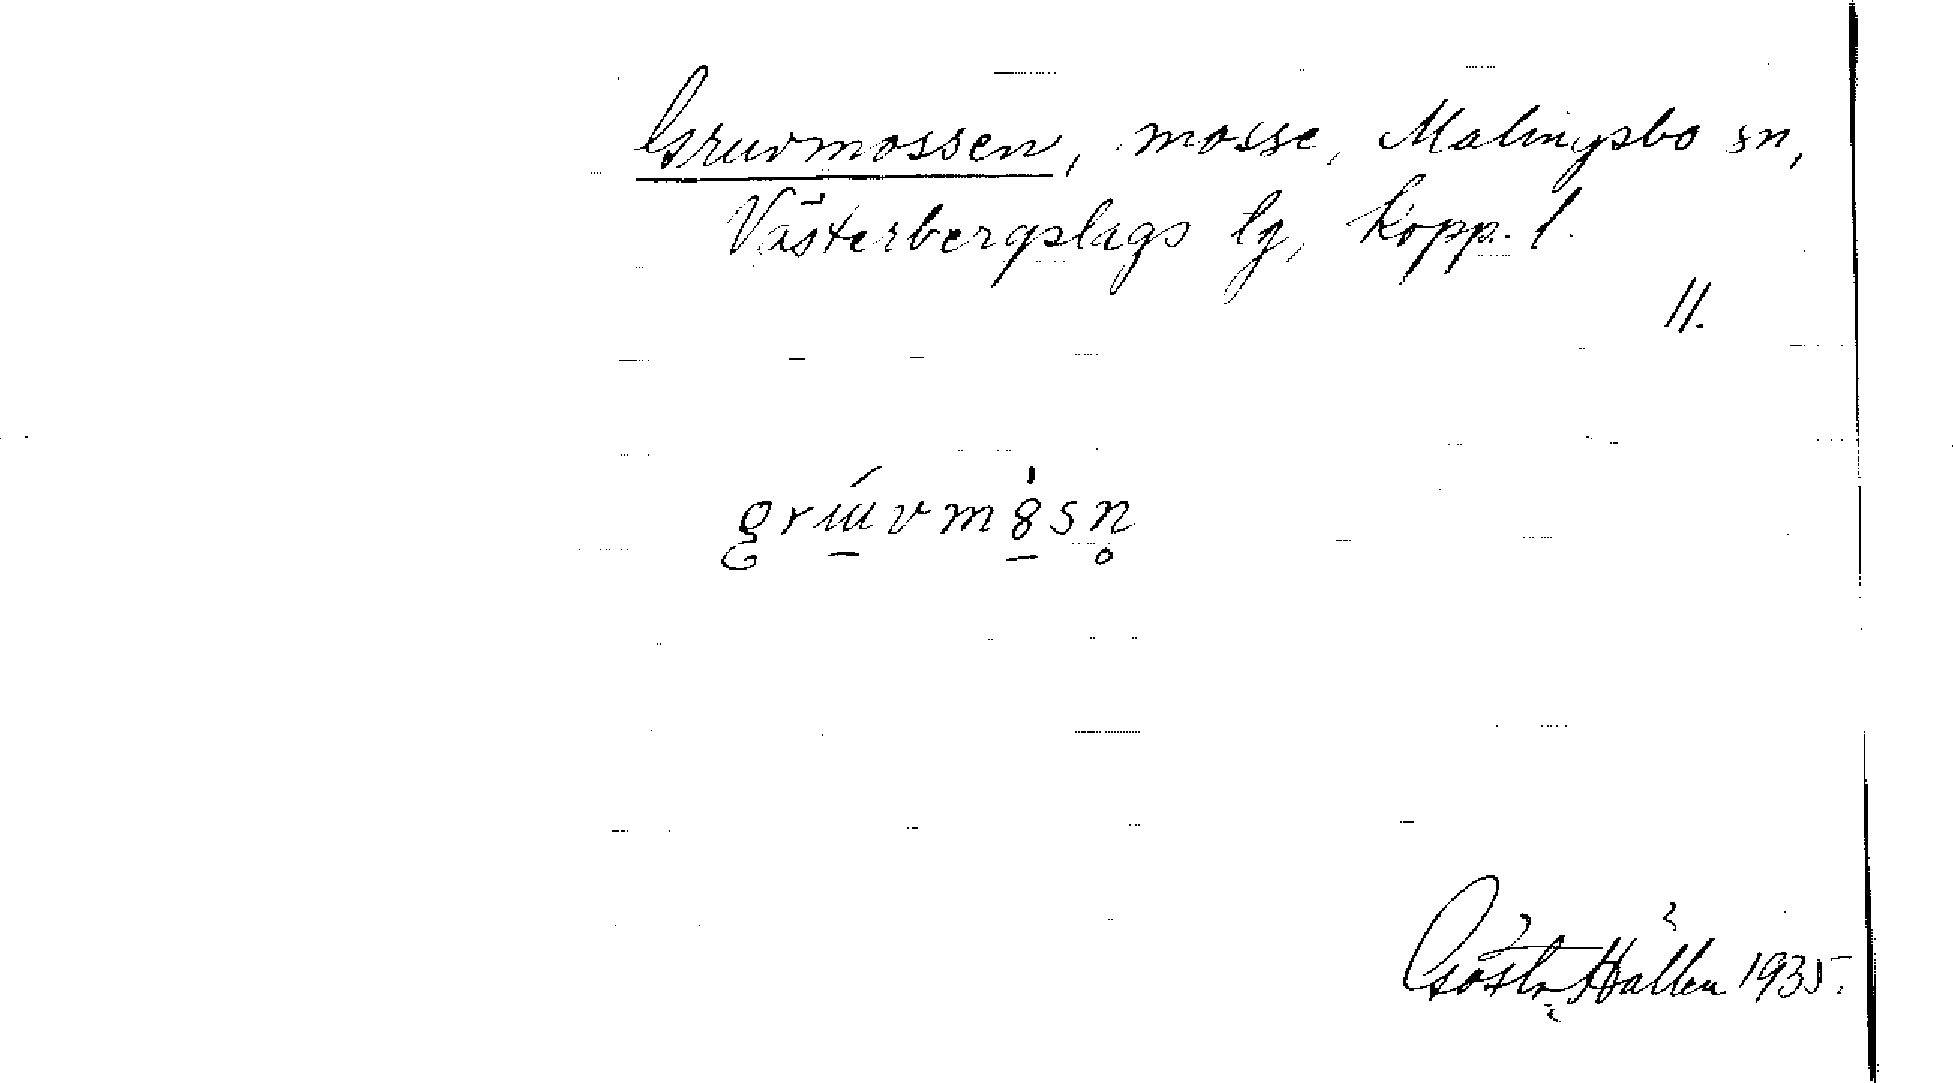 Gruvmossen, mosse, Malingsbo sn,
Västerbergslags lg, Kopp. l.
11.
Gösta Hällen 1935.